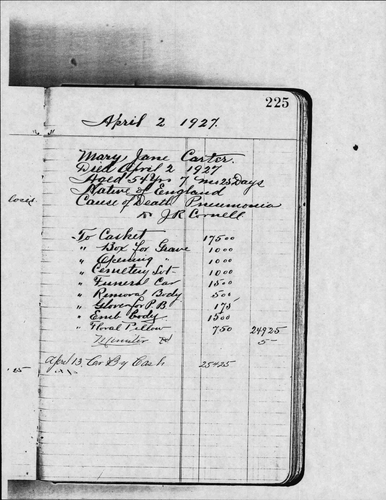 225
April 2 1927.
Mary Jane Carter.
Died April 2 1927
Aged 54 Yrs 7 mos 25 Days
Native of England
Cause of Death Pneumonia
Dr J.R Cornell
To Casket 175 00
" Box for Grave 10 00
" Opening " 10 00
" Cemetery Lot 10 00
" Funeral Car 15 00
" Removal Body 5 00
" Gloves for P.B. 1 75
" Emb body 15 00
" Floral Pillow 7 50 249 25
Minister 5 -
April 13 Cr By Cash 254 25